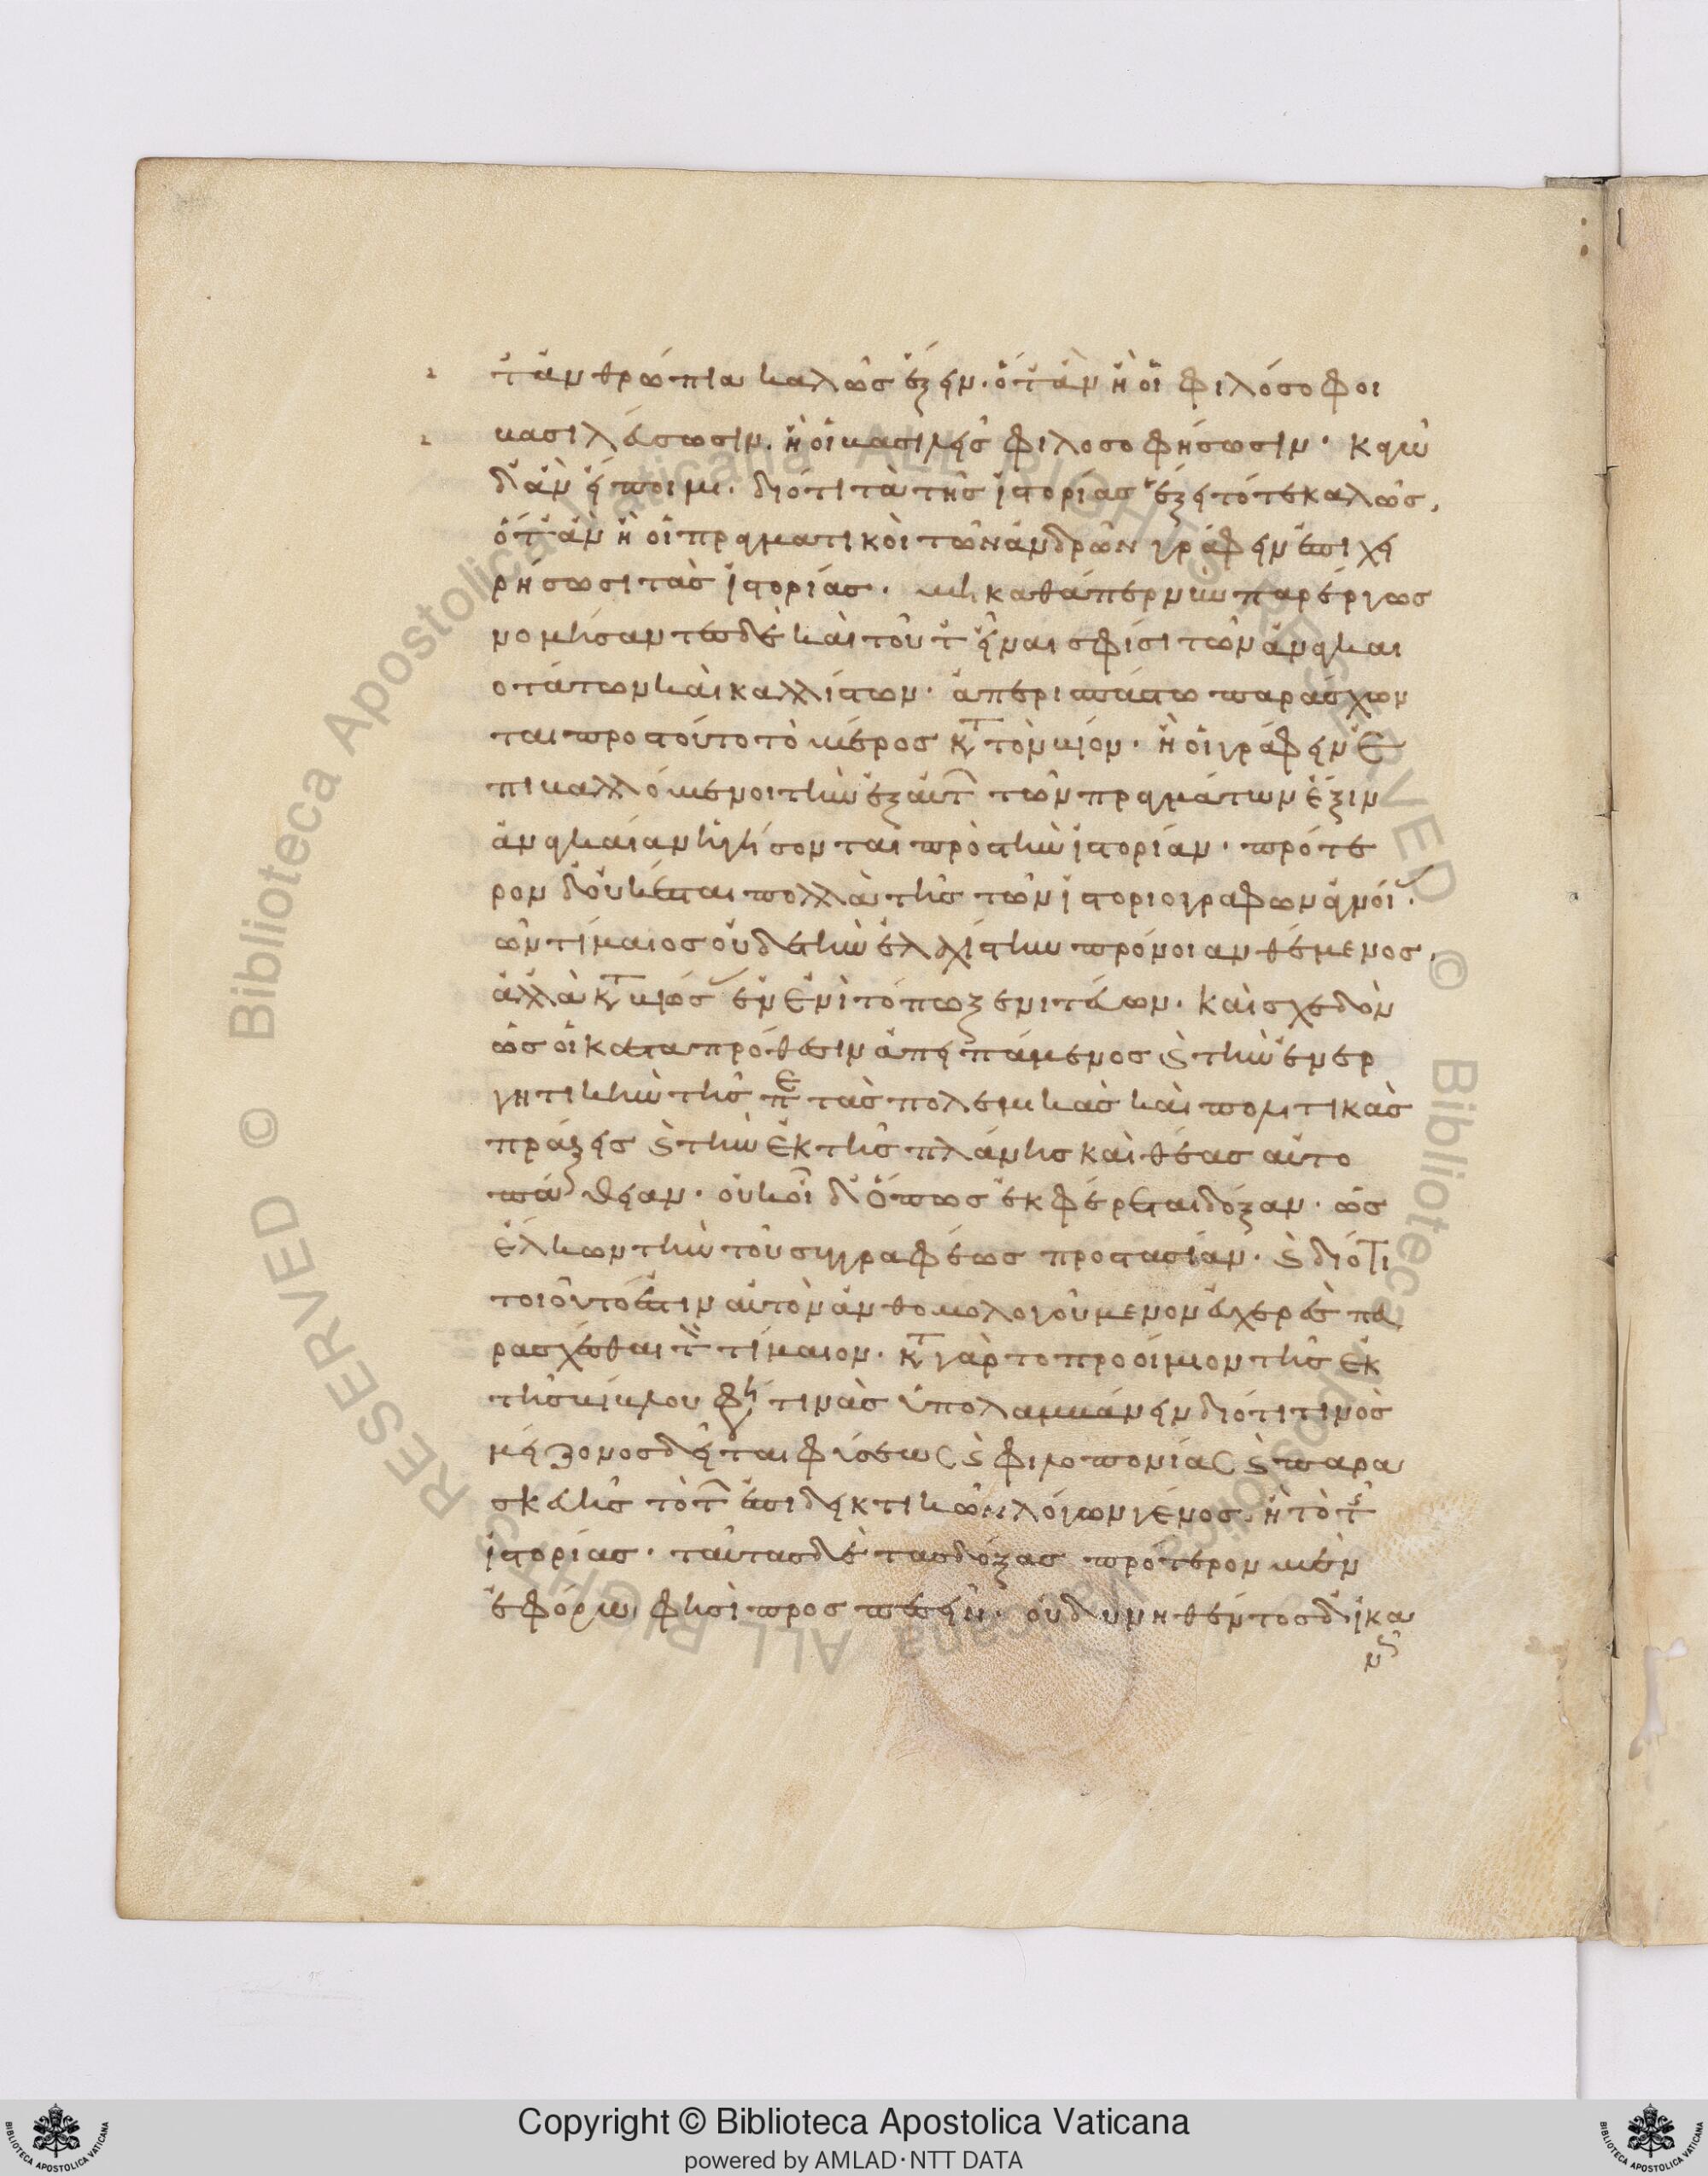 τἀνθρώπια καλῶς ἕξειν. ὅταν ἢ οἱ φιλόσοφοι
βασιλεύσωσιν. ἢ οἱ βασιλεῖς φιλοσοφήσωσιν. κἀγὼ
δ' ἂν εἴποιμι. διότι τὰ τῆς ἱστορίας ἕξει τότε καλῶς,
ὅταν ἢ οἱ πραγματικοὶ τῶν ἀνδρῶν γράφειν ἐπιχει
ρήσωσι τὰς ἱστορίας. μὴ καθάπερ νῦν παρέργως
νομίσαντες δὲ καὶ τοῦτ' εἶναι σφίσι τῶν ἀναγκαι
οτάτων καὶ καλλίστων. ἀπερίσπαστοι παράσχων
ται πρὸς τοῦτο τὸ μέρος κατὰ τὸν βίον. ἢ οἱ γράφειν ἐ
πιβαλλόμενοι τὴν ἐξ αὐτῶν τῶν πραγμάτων ἕξιν
ἀναγκαίαν ἡγήσονται πρὸς τὴν ἱστορίαν. πρότε
ρον δ' οὐκ ἔσται παῦλα τῆς τῶν ἱστοριογράφων ἀγνοίας.
ὧν Τίμαιος οὐδὲ τὴν ἐλαχίστην πρόνοιαν θέμενος,
ἀλλὰ καταβιώσας ἐν ἑνὶ τόπῳ ξενιτεύων. καὶ σχεδὸν
ὡς εἰ κατὰ πρόθεσιν ἀπειπάμενος καὶ τὴν ἐνερ
γητικὴν τῆς περὶ τὰς πολεμικὰς καὶ πολιτικὰς
πράξεις καὶ τὴν ἐκ τῆς πλάνης καὶ θέας αὐτο
πάθειαν. οὐκ οἶδ' ὅπως ἐκφέρεται δόξαν. ὡς
ἕλκων τὴν τοῦ συγγραφέως προστασίαν. καὶ διότι
τοιοῦτός ἐστιν αὐτὸν ἀνθομολογούμενον εὐχερὲς πα
ρασχέσθαι τὸν Τίμαιον. κατὰ γὰρ τὸ προοίμιον τῆς ἕκ
της βίβλου φησί τινας ὑπολαμβάνειν διότι τινὸς
μείζονος δεῖται φύσεως καὶ φιλοπονίας καὶ παρα
σκευῆς τὸ τῶν ἐπιδεικτικῶν λόγων γένος. ἢ τὸ τῆς
ἱστορίας. ταύτας δὲ τὰς δόξας πρότερον μὲν
Ἐφόρῳ φησὶ προσπεσεῖν. οὐ δυνηθέντος δ' ἱκα
νῶς